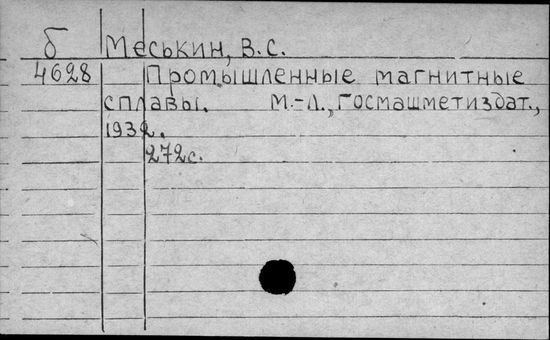 б Меськин, В.С.
4628 Промышленные магнитные
сплавы. М.-Л., Госмашметиздат.,
1932.
272с.